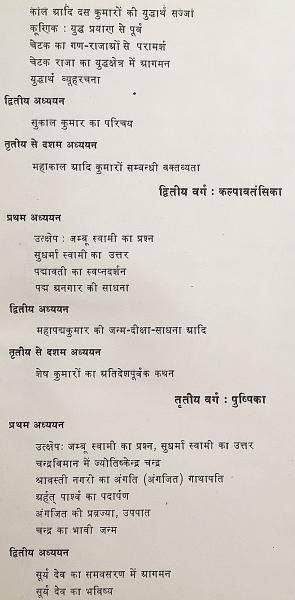 काल आदि दस कुमारों की युद्धार्थ सज्जा
कूणिक : युद्ध प्रयाण से पूर्व
चेटक का गण-राजाओं से परामर्श
चेटक राजा का युद्धक्षेत्र में आगमन
युद्धार्थ व्यूहरचना
द्वितीय अध्ययन
सुकाल कुमार का परिचय
तृतीय से दशम अध्ययन
महाकाल आदि कुमारों सम्बन्धी वक्तव्यता
द्वितीय वर्ग : कल्पावतंसिका
प्रथम अध्ययन
उत्क्षेप : जम्बू स्वामी का प्रश्न
सुधर्मा स्वामी का उत्तर
पद्मावती का स्वप्नदर्शन
पद्म अनगार की साधना
द्वितीय अध्ययन
महापद्मकुमार की जन्म-दीक्षा-साधना आदि
तृतीय से दशम अध्ययन
शेष कुमारों का अतिदेशपूर्वक कथन
तृतीय वर्ग : पुष्पिका
प्रथम अध्ययन
उत्क्षेप: जम्बू स्वामी का प्रश्न, सुधर्मा स्वामी का उत्तर
चन्द्रविमान में ज्योतिष्केन्द्र चन्द्र
श्रावस्ती नगरी का अंगति (अंगजित) गाथापति
अर्हत् पार्श्व का पदार्पण
अंगजित की प्रव्रज्या, उपपात
चन्द्र का भावी जन्म
द्वितीय अध्ययन
सूर्य देव का समवसरण में आगमन
सूर्य देव का भविष्य